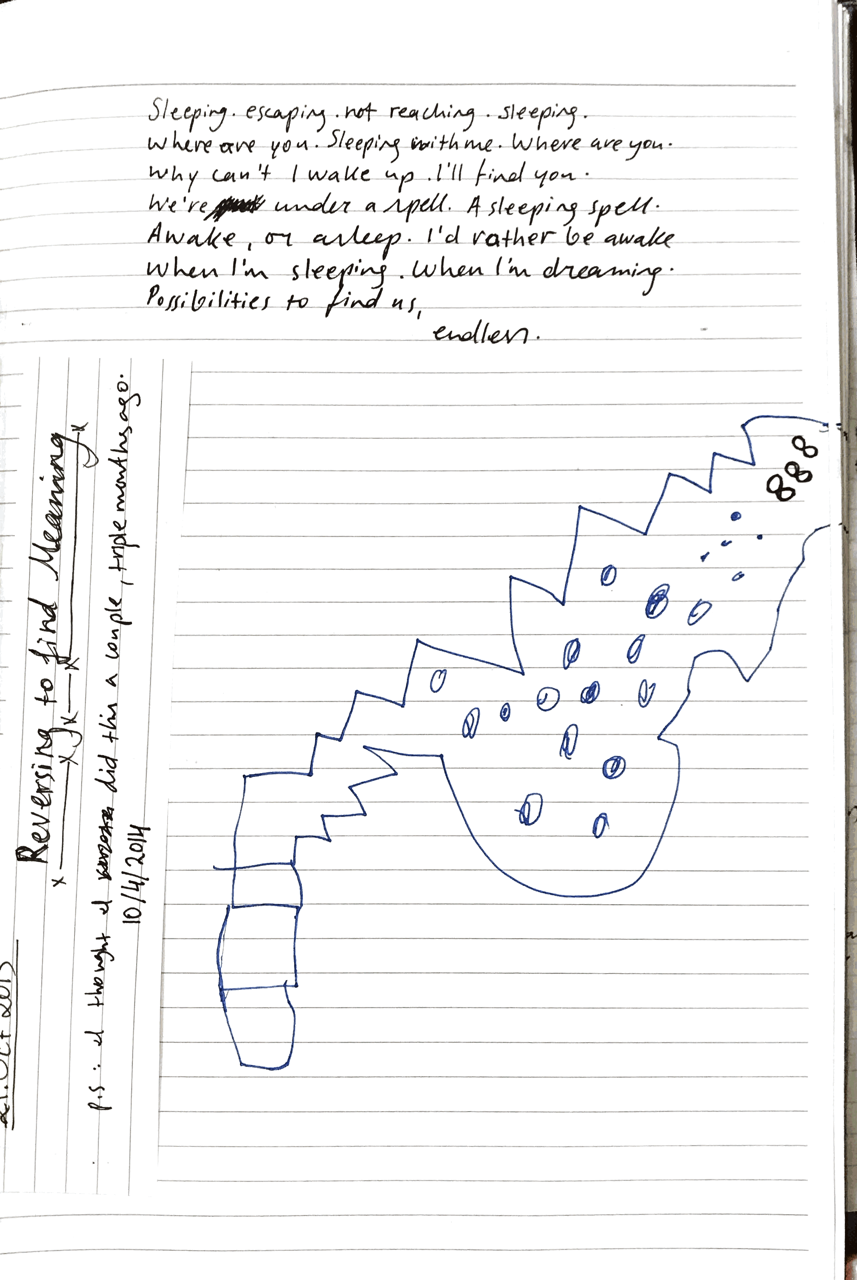 Sleeping. escaping. not reaching. sleeping.
Where are you. Sleeping with me. Where are you.
Why can't I wake up. I'll find you.
We're under a spell. A sleeping spell.
Awake, or asleep. I'd rather be awake
when I'm sleeping. When I'm dreaming.
Possibilities to find us,
endless.
888
Reversing to find Meaning
p.s: I thought I did this a couple, triple months ago.
10/4/2014
Oct 2013